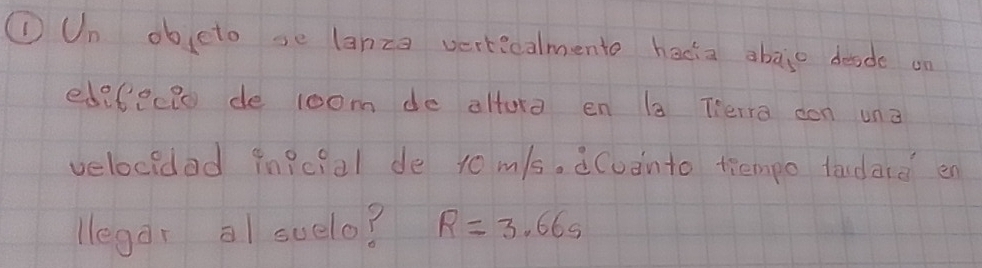 ① Un objeto se lanza verticalmente hacia abajo desde un
edificio de 100m de altura en la Tierra con una
velocidad inicial de 10 m/s. ¿Cuánto tiempo tardará en
llegar al suelo? R = 3.66s